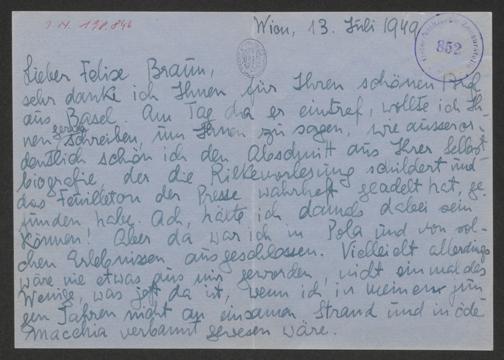 I.N. 198.846
Wien, 13. Juli 1949
852
Lieber Felix Braun,
sehr danke ich Ihnen für Ihren schönen Brief
aus Basel. Am Tag da er eintraf, wollte ich Ih-
nen gerade schreiben, um Ihnen zu sagen, wie ausseror-
dentlich schön ich den Abschnitt aus Ihrer Selbst
biografie der die Rilkevorlesung schildert und
das Feuilleton der Presse wahrhaft geadelt hat, ge-
funden habe. Ach, hätte ich damals dabei sein
können! Aber da war ich in Pola und von sol-
chen Erlebnissen ausgeschlossen. Vielleicht allerdings
wäre nie etwas aus mir geworden, nicht einmal das
Wenige, was jetzt da ist, wenn ich in meinen jun-
gen Jahren nicht an einsamen Strand und in öde
Macchia verbannt gewesen wäre.